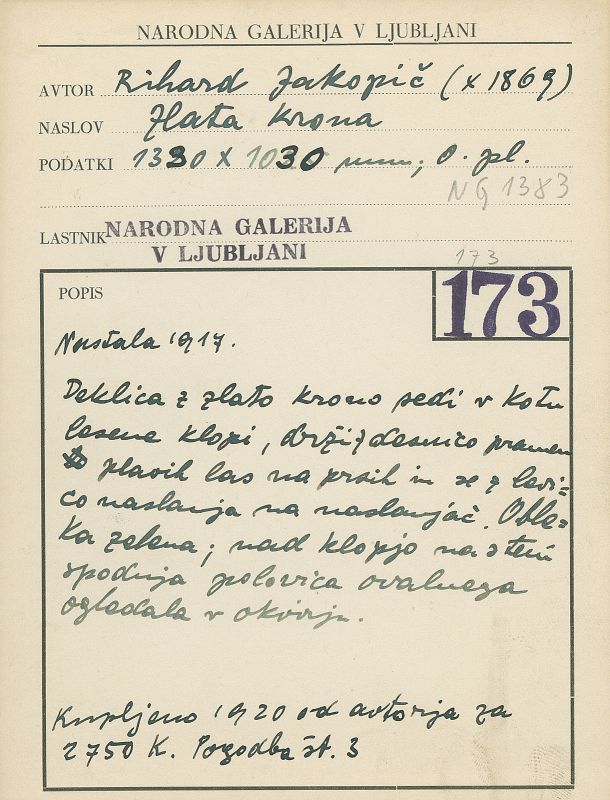 NARODNA GALERIJA V LJUBLJANI
AVTOR Rihard Jakopič (x 1869)
NASLOV Zlata Krona
PODATKI 1330 x 1030 mm; o. pl.
NG 1383
LASTNIK NARODNA GALERIJA
V LJUBLJANI
173
POPIS
173
Nastala 1917.
Deklica z zlato krono sedi v kotu
lesene klopi, drži z desnico pramen
plavih las na prsih in se z levi=
co naslanja na naslanjač. Oble=
ka zelena; nad klopjo na steni
spodnja polovica ovalnega
ogledala v okvirju.
Kupljeno 1920 od avtorja za
2750 K. Pogodba št. 3